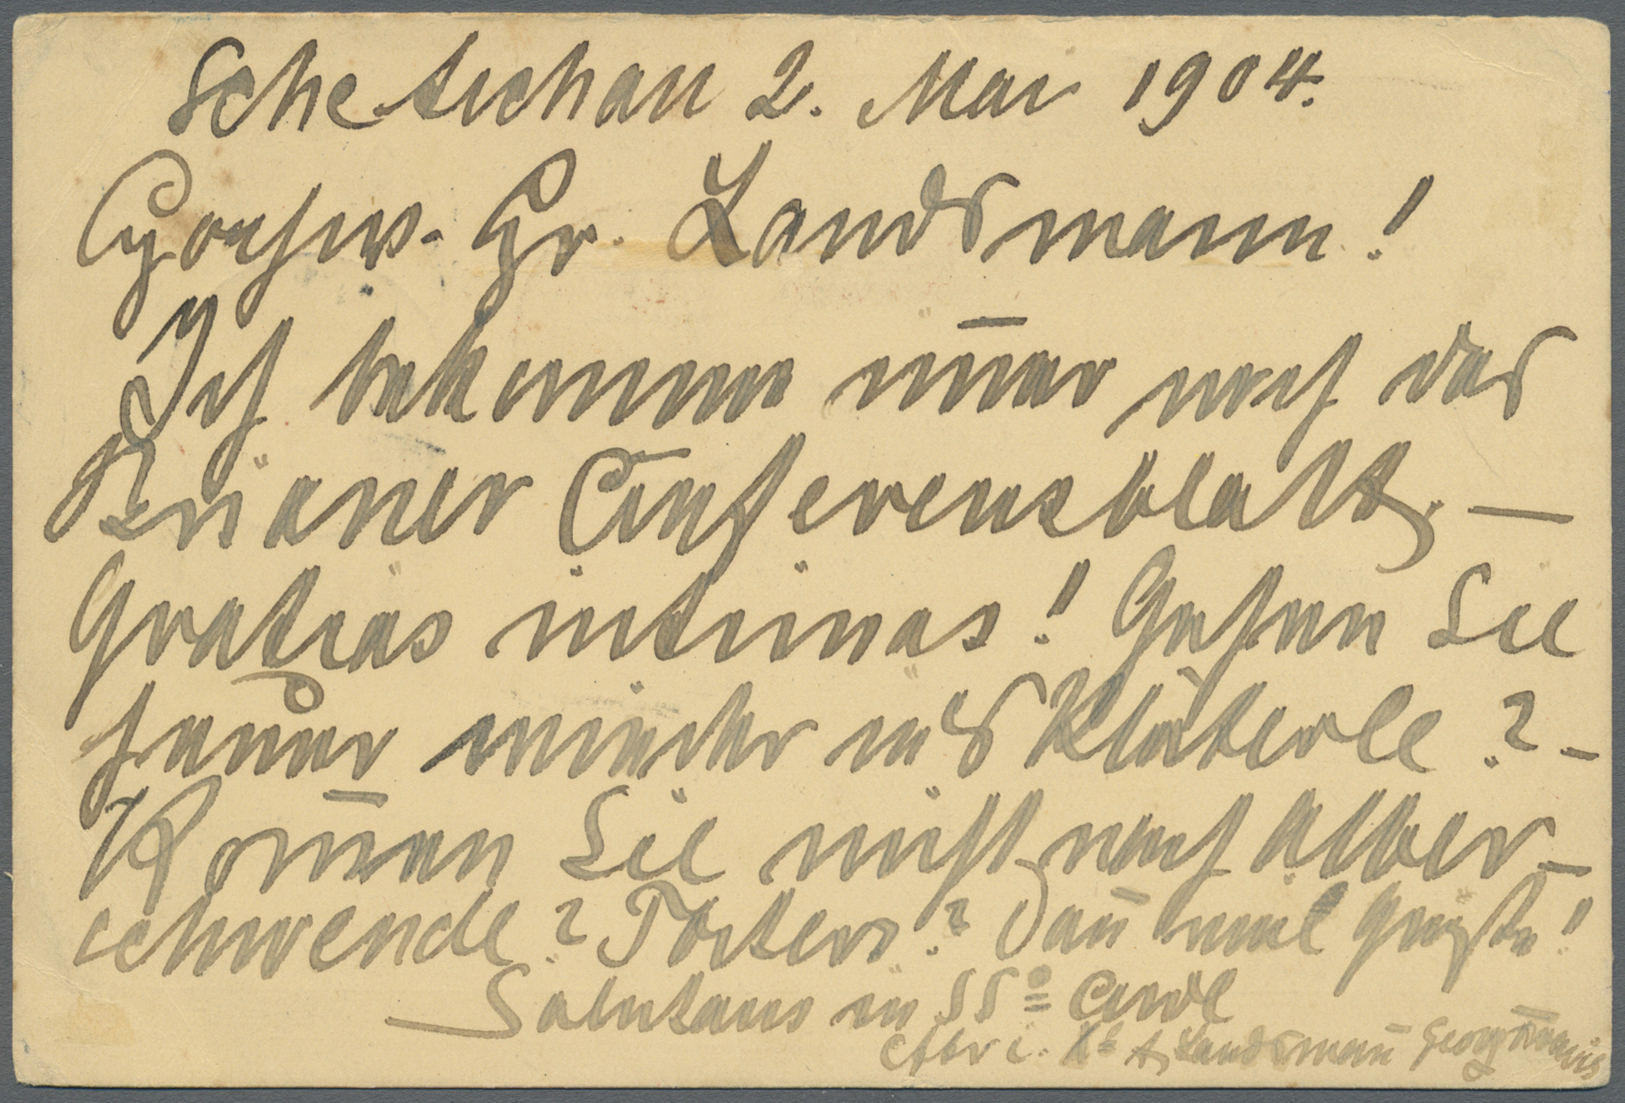 Schetschan 2. Mai 1904.
Hochw. Hr. Landsmann!
Ich bekomme im̅er noch das
Brixner Conferenzblatt, —
Gratias intimas! Gehen Sie
heuer wieder ins Klösterle? -
Kom̅en Sie nicht nach Alber-
schwende? Tosters? Dan̅ viel Grüße!
Salutans in SSº Corde
cfbr i. Xº Landsman̅ Georg